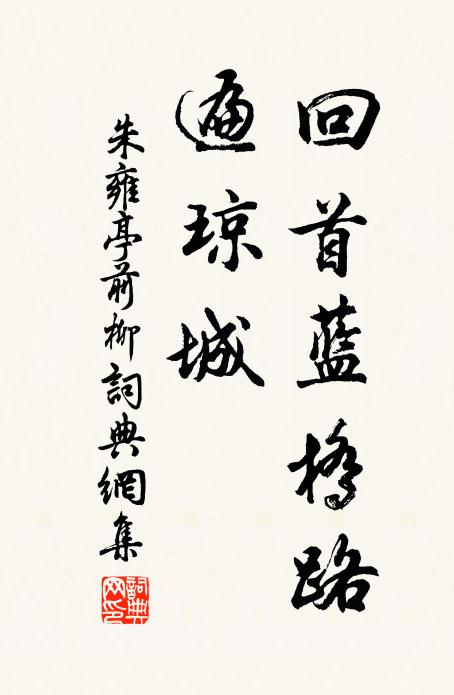 回首藍橋路
遍琼城
朱雍亭前柳詞典網集
詞典网印